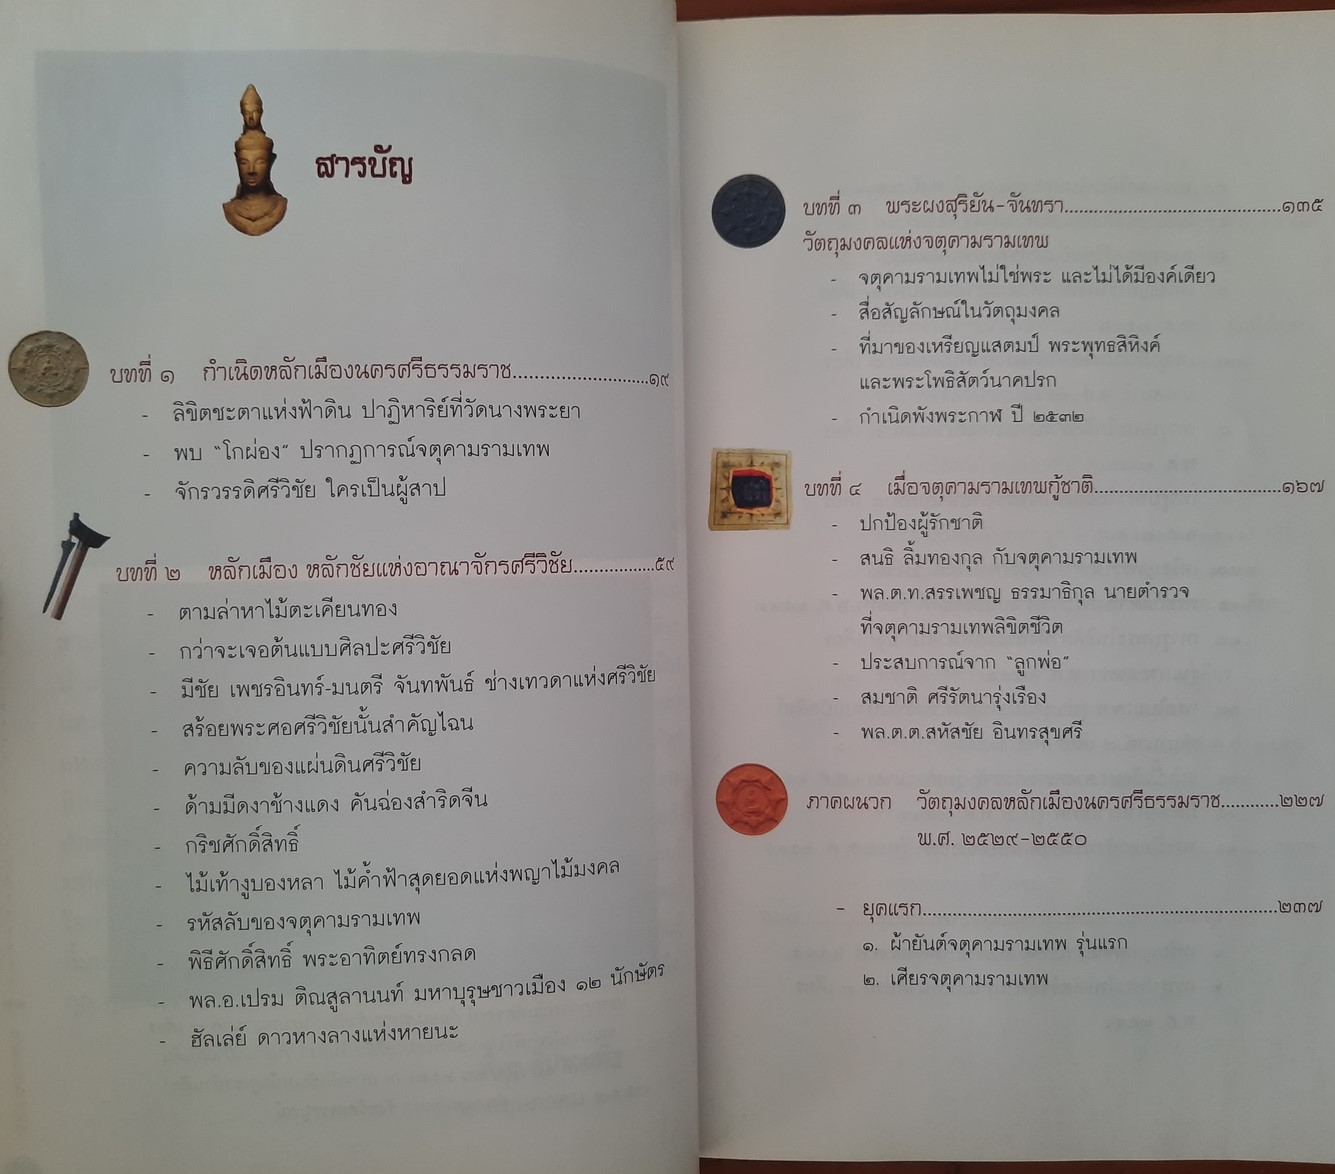 สารบัญ
บทที่ ๑ กำเนิดหลักเมืองนครศรีธรรมราช................................๑๙
- ลิขิตชะตาแห่งฟ้าดิน ปาฏิหาริย์ที่วัดนางพระยา
- พบ “โกผ่อง” ปรากฏการณ์จตุคามรามเทพ
- จักรวรรดิศรีวิชัย ใครเป็นผู้สาป
บทที่ ๒ หลักเมือง หลักชัยแห่งอาณาจักรศรีวิชัย.................๕๙
- ตามล่าหาไม้ตะเคียนทอง
- กว่าจะเจอต้นแบบศิลปะศรีวิชัย
- มีชัย เพชรอินทร์-มนตรี จันทพันธ์ ช่างเทวดาแห่งศรีวิชัย
- สร้อยพระศอศรีวิชัยนั้นสำคัญไฉน
- ความลับของแผ่นดินศรีวิชัย
- ด้ามมีดงาช้างแดง คันฉ่องสำริดจีน
- กริชศักดิ์สิทธิ์
- ไม้เท้างูบองหลา ไม้ค้ำฟ้าสุดยอดแห่งพญาไม้มงคล
- รหัสลับของจตุคามรามเทพ
- พิธีศักดิ์สิทธิ์ พระอาทิตย์ทรงกลด
- พล.อ.เปรม ติณสูลานนท์ มหาบุรุษชาวเมือง ๑๒ นักษัตร
- ฮัลเล่ย์ ดาวหางลางแห่งหายนะ
บทที่ ๓ พระผงสุริยัน-จันทรา............................................๑๓๕
วัตถุมงคลแห่งจตุคามรามเทพ
- จตุคามรามเทพไม่ใช่พระ และไม่ได้มีองค์เดียว
- สื่อสัญลักษณ์ในวัตถุมงคล
- ที่มาของเหรียญแสตมป์ พระพุทธสิหิงค์
และพระโพธิสัตว์นาคปรก
- กำเนิดพังพระกาฬ ปี ๒๕๓๒
บทที่ ๔ เมื่อจตุคามรามเทพกู้ชาติ......................................๑๖๗
- ปกป้องผู้รักชาติ
- สนธิ ลิ้มทองกุล กับจตุคามรามเทพ
- พล.ต.ท.สรรเพชญ ธรรมาธิกุล นายตำรวจ
ที่จตุคามรามเทพลิขิตชีวิต
- ประสบการณ์จาก “ลูกพ่อ”
- สมชาติ ศรีรัตนารุ่งเรือง
- พล.ต.ต.สหัสชัย อินทรสุขศรี
ภาคผนวก วัตถุมงคลหลักเมืองนครศรีธรรมราช............๒๒๗
พ.ศ. ๒๕๒๙-๒๕๕๐
- ยุคแรก..............................................................๒๓๗
๑. ผ้ายันต์จตุคามรามเทพ รุ่นแรก
๒. เศียรจตุคามรามเทพ